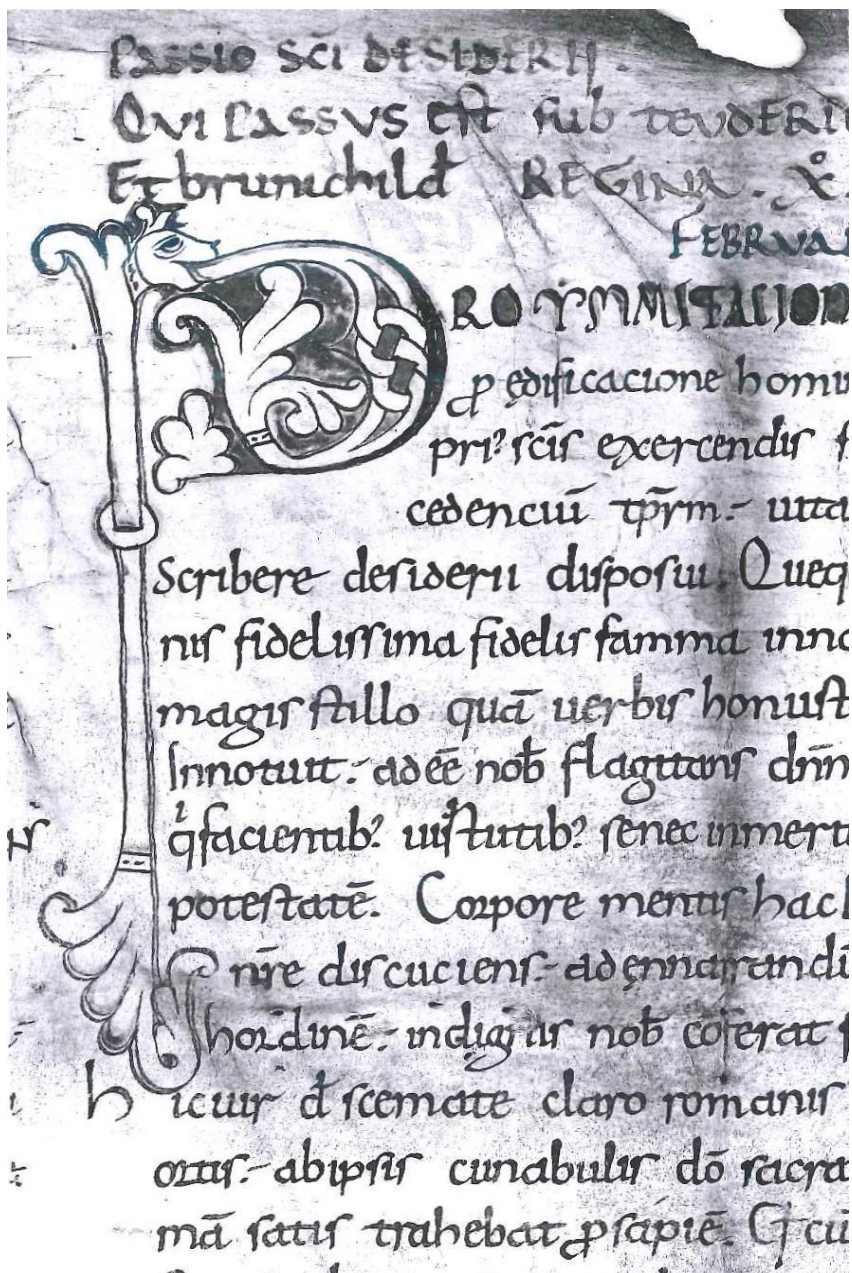 PASSIO SCI DESIDERII.
QVI PASSVS EST sub TEVDERI
Et brunichild REGINA. X.
FEBRVA
PRO YMMITACION
p̄ ędificacione homi
pri⁊ sc̄is exercendis
cedenciū tp̄rm. uita
Scribere desiderii disposui. Queq
nis fidelissima fidelis famma inno
magis stillo quā uerbis honust
Innotuit. ad eē nob̄ flagitans dn̄m
q facientib⁊ senec inmeri
potestatē. Corpore mentis hac
nr̄e discuciens. ad ennarrandū
hordinē. indignis nob̄ cōferat
hic uir d̄ scemate claro romanis
ortus. ab ipsis cunabulis dō sacra
mā satis trahebat p̄sapiē. cū